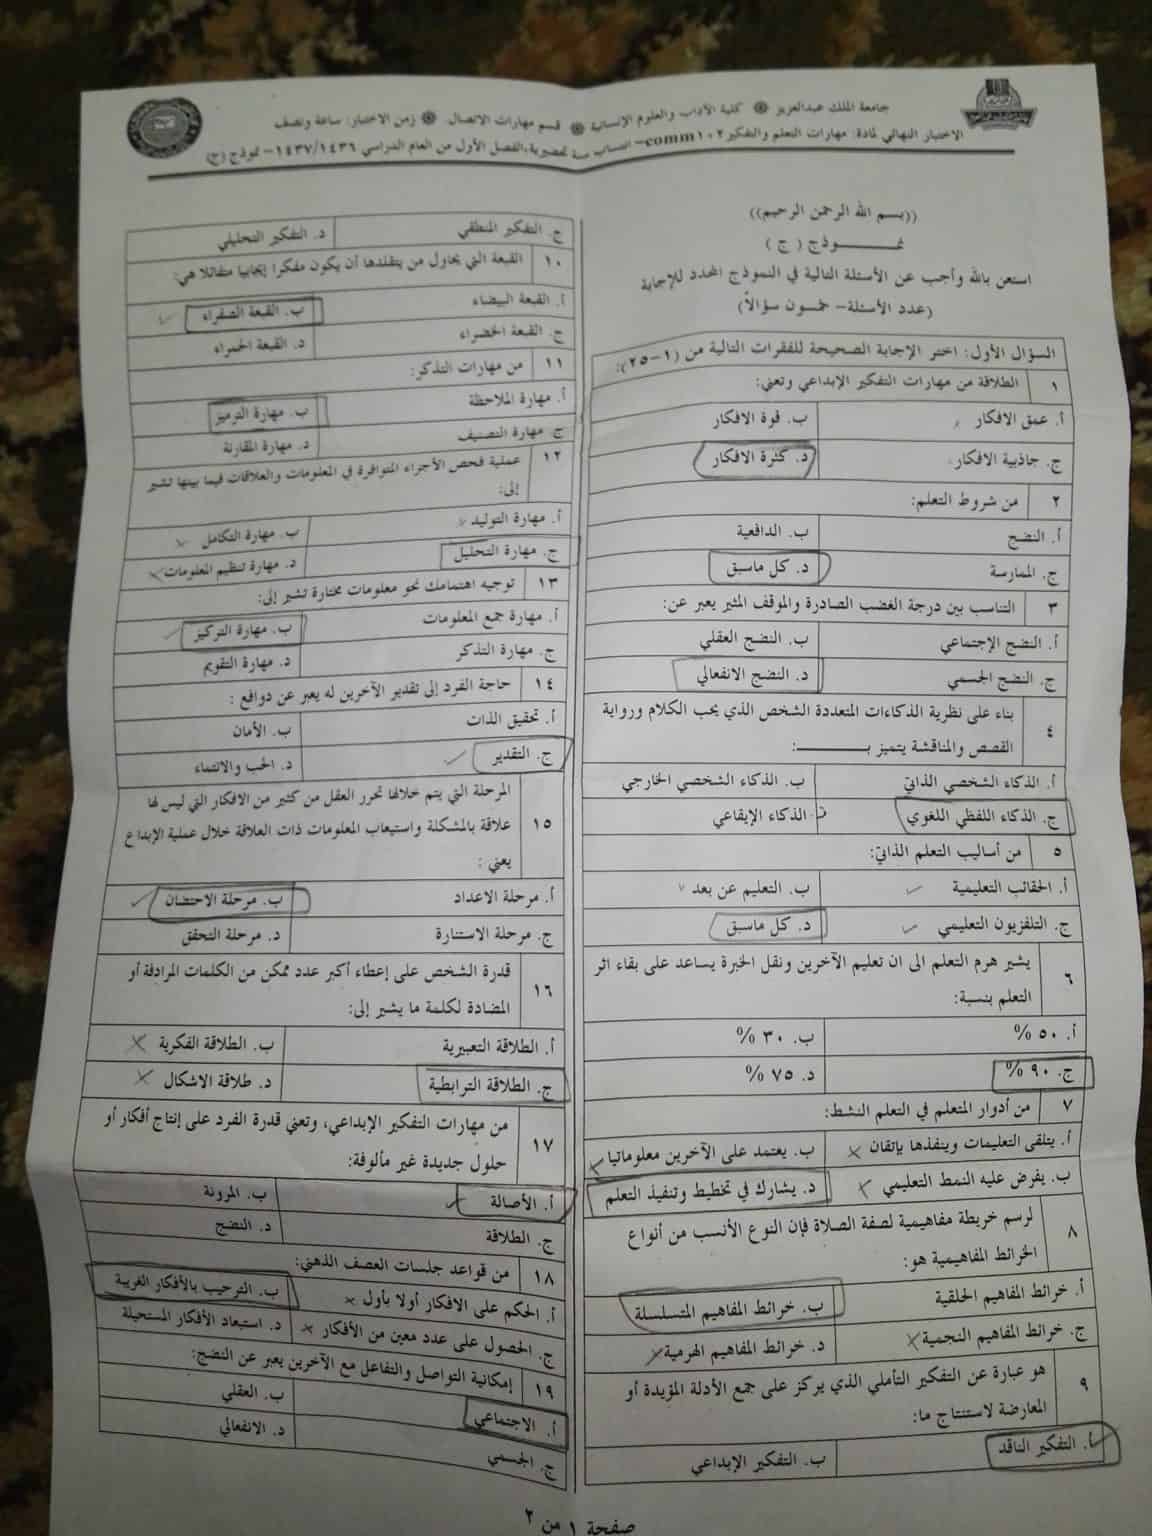 جامعة الملك عبدالعزيز ۞ كلية الآداب والعلوم الإنسانية ۞ قسم مهارات الاتصال ۞ زمن الاختبار: ساعة ونصف
الاختبار النهائي لمادة: مهارات التعلم والتفكير comm١٠٢- انتساب سنة تحضيرية، الفصل الأول من العام الدراسي ١٤٣٧/١٤٣٦- نموذج (ج)
((بسم الله الرحمن الرحيم))
نمـــــــوذج ( ج )
استعن بالله وأجب عن الأسئلة التالية في النموذج المحدد للإجابة
(عدد الأسئلة- خمسون سؤالاً)
السؤال الأول: اختر الإجابة الصحيحة للفقرات التالية من (١-٢٥):
١ الطلاقة من مهارات التفكير الإبداعي وتعني:
أ. عمق الافكار ب. قوة الافكار
ج. جاذبية الافكار د. كثرة الافكار
٢ من شروط التعلم:
أ. النضج ب. الدافعية
ج. الممارسة د. كل ماسبق
٣ التناسب بين درجة الغضب الصادرة والموقف المثير يعبر عن:
أ. النضج الإجتماعي ب. النضج العقلي
ج. النضج الجسمي د. النضج الانفعالي
٤ بناء على نظرية الذكاءات المتعددة الشخص الذي يحب الكلام ورواية
القصص والمناقشة يتميز بــــــــــ:
أ. الذكاء الشخصي الذاتي ب. الذكاء الشخصي الخارجي
ج. الذكاء اللفظي اللغوي د. الذكاء الإيقاعي
٥ من أساليب التعلم الذاتي:
أ. الحقائب التعليمية ب. التعليم عن بعد
ج. التلفزيون التعليمي د. كل ماسبق
٦ يشير هرم التعلم الى ان تعليم الآخرين ونقل الخبرة يساعد على بقاء اثر
التعلم بنسبة:
أ. ٥٠ % ب. ٣٠ %
ج. ٩٠ % د. ٧٥ %
٧ من أدوار المتعلم في التعلم النشط:
أ. يتلقى التعليمات وينفذها بإتقان ب. يعتمد على الآخرين معلوماتيا
ب. يفرض عليه النمط التعليمي د. يشارك في تخطيط وتنفيذ التعلم
٨ لرسم خريطة مفاهيمية لصفة الصلاة فإن النوع الأنسب من أنواع
الخرائط المفاهيمية هو:
أ. خرائط المفاهيم الحلقية ب. خرائط المفاهيم المتسلسلة
ج. خرائط المفاهيم النجمية د. خرائط المفاهيم الهرمية
٩ هو عبارة عن التفكير التأملي الذي يركز على جمع الأدلة المؤيدة أو
المعارضة لاستنتاج ما:
أ. التفكير الناقد ب. التفكير الإبداعي
ج. التفكير المنطقي د. التفكير التحليلي
١٠ القبعة التي يحاول من يتقلدها أن يكون مفكرا إيجابيا متفائلا هي:
أ. القبعة البيضاء ب. القبعة الصفراء
ج. القبعة الخضراء د. القبعة الحمراء
١١ من مهارات التذكر:
أ. مهارة الملاحظة ب. مهارة الترميز
ج. مهارة التصنيف د. مهارة المقارنة
١٢ عملية فحص الأجزاء المتوافرة في المعلومات والعلاقات فيما بينها تشير
إلى:
أ. مهارة التوليد ب. مهارة التكامل
ج. مهارة التحليل د. مهارة تنظيم المعلومات
١٣ توجيه اهتمامك نحو معلومات مختارة تشير إلى:
أ. مهارة جمع المعلومات ب. مهارة التركيز
ج. مهارة التذكر د. مهارة التقويم
١٤ حاجة الفرد إلى تقدير الآخرين له يعبر عن دوافع :
أ. تحقيق الذات ب. الأمان
ج. التقدير د. الحب والانتماء
١٥ المرحلة التي يتم خلالها تحرر العقل من كثير من الافكار التي ليس لها
علاقة بالمشكلة واستيعاب المعلومات ذات العلاقة خلال عملية الإبداع
يعني :
أ. مرحلة الاعداد ب. مرحلة الاحتضان
ج. مرحلة الاستنارة د. مرحلة التحقق
١٦ قدرة الشخص على إعطاء أكبر عدد ممكن من الكلمات المرادفة أو
المضادة لكلمة ما يشير إلى:
أ. الطلاقة التعبيرية ب. الطلاقة الفكرية
ج. الطلاقة الترابطية د. طلاقة الاشكال
١٧ من مهارات التفكير الإبداعي، وتعني قدرة الفرد على إنتاج أفكار أو
حلول جديدة غير مألوفة:
أ. الأصالة ب. المرونة
ج. الطلاقة د. النضج
١٨ من قواعد جلسات العصف الذهني:
أ. الحكم على الافكار أولا بأول ب. الترحيب بالأفكار الغريبة
ج. الحصول على عدد معين من الأفكار د. استبعاد الأفكار المستحيلة
١٩ إمكانية التواصل والتفاعل مع الآخرين يعبر عن النضج:
أ. الاجتماعي ب. العقلي
ج. الجسمي د. الانفعالي
صفحة ١ من ٢